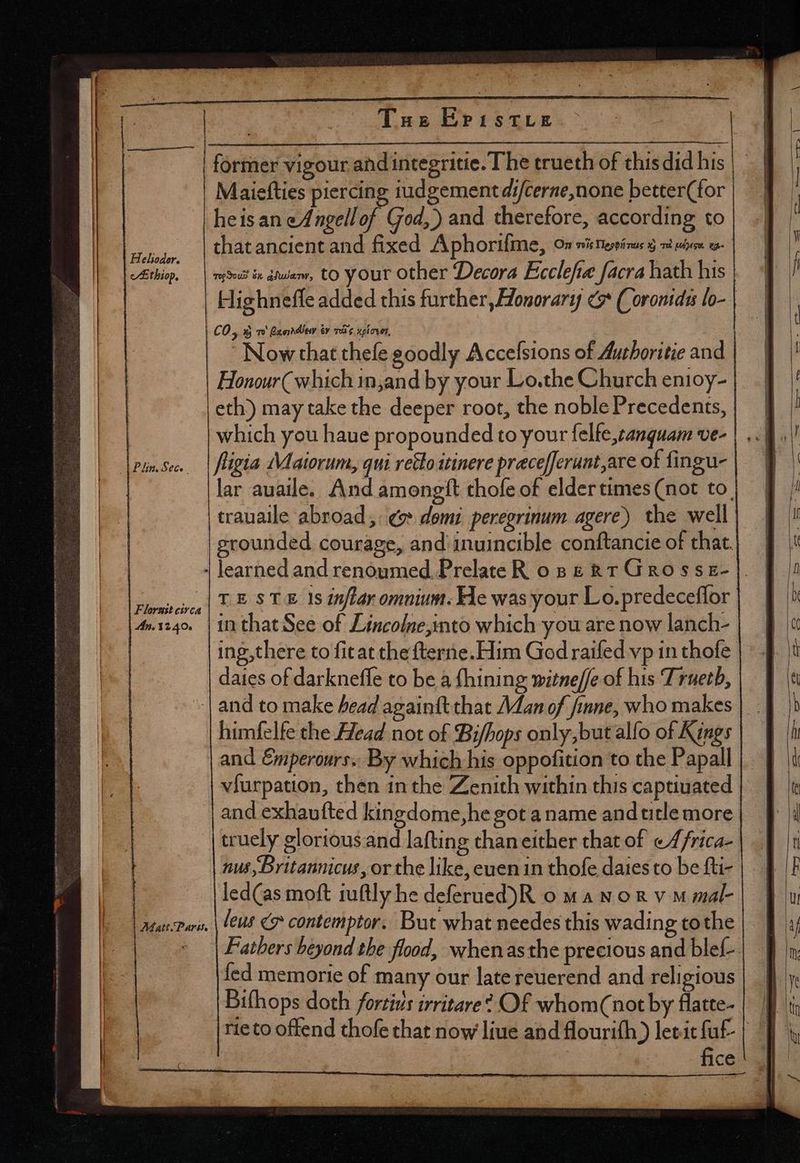 THE EPISTLE
former vigour and integritie. The trueth of this did his
Maieſties piercing iudgement diſcerne, none better (for
he is an Angell of God,) and therefore, according to
Heliodor.
Æthiop.
that ancient and fixed Aphoriſme,
to your other Decora Eccleſiæ ſacra hath his
Highneſſe added this further, Honorary & Coronidis lo-
co,
Now that theſe goodly Acceſsions of Authoritie and
Honour (which in, and by your Lo. the Church enioy-
eth) may take the deeper root, the noble Precedents,
which you haue propounded to your ſelfe, tanquam ve-
Plin. Sec.
ſtigia Maiorum, qui recto itinere præceſſerunt, are of ſingu-
lar auaile. And amongſt thoſe of elder times (not to
trauaile abroad, & domi peregrinum agere) the well
grounded courage, and inuincible conſtancie of that
learned and renoumed Prelate ROBERT GROSSE-
Floruit circa
An. 1240.
TESTE is inſtar omnium. He was your Lo. predeceſſor
in that See of Lincolne, into which you are now lanch-
ing, there to ſit at the ſterne. Him God raiſed vp in thoſe
daies of darkneſſe to be a ſhining witneſſe of his Trueth,
and to make head againſt that Man of ſinne, who makes
himſelfe the Head not of Biſhops only, but alſo of Kings
and Emperours. By which his oppoſition to the Papall
vſurpation, then in the Zenith within this captiuated
and exhauſted kingdome, he got a name and title more
truely glorious and laſting than either that of Africa-
nus, Britannicus, or the like, euen in thoſe daies to be ſti-
led (as moſt iuſtly he deſerued) ROMANORVM mal-
Matt. Paris.
leus & contemptor. But what needes this wading to the
Fathers beyond the flood, when as the precious and bleſ-
ſed memorie of many our late reuerend and religious
Biſhops doth fortiùs irritare? Of whom (not by flatte-
rie to offend thoſe that now liue and flouriſh) let it ſuf-
fice